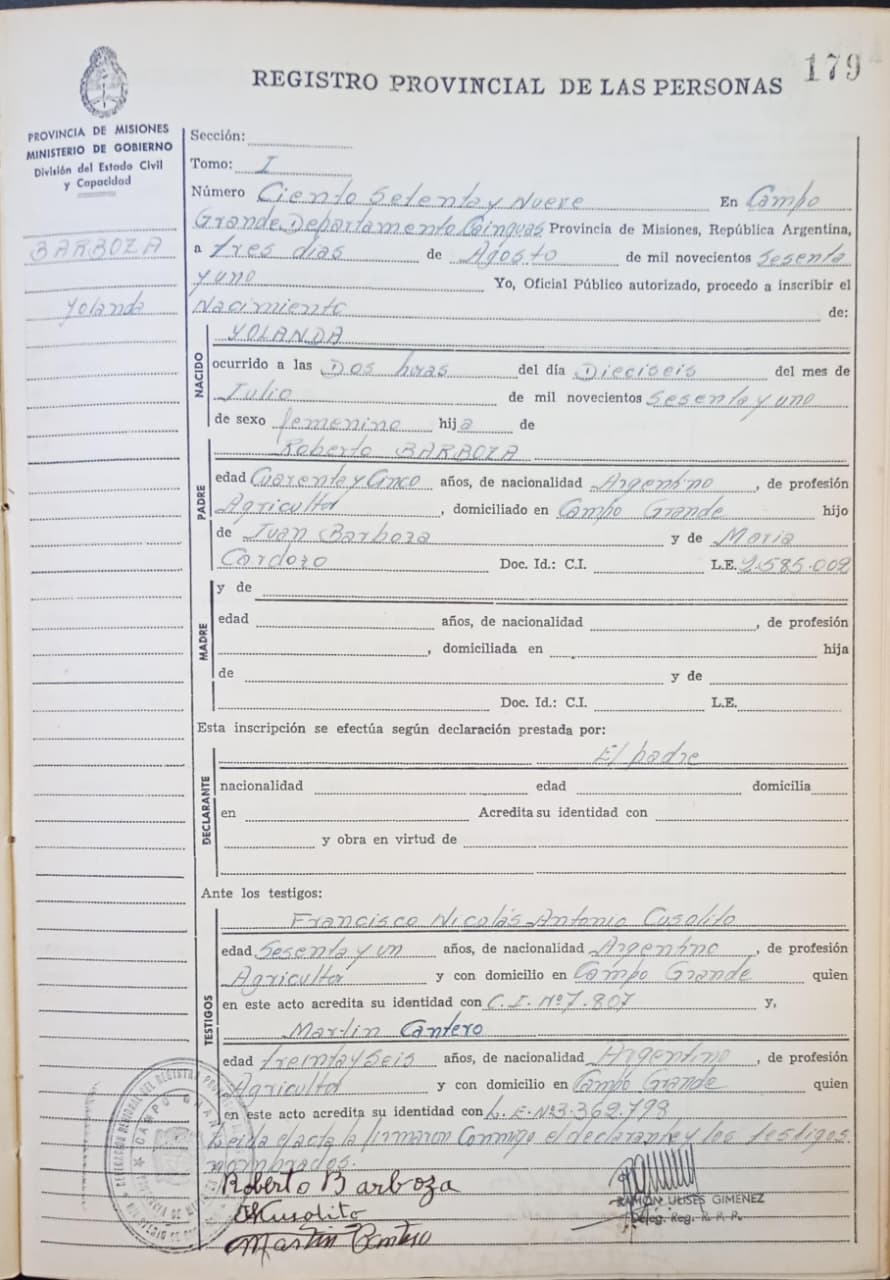 179
REGISTRO PROVINCIAL DE LAS PERSONAS
PROVINCIA DE MISIONES
MINISTERIO DE GOBIERNO
División del Estado Civil
y Capacidad
BARBOZA
Yolanda
Sección:
Tomo: I
Número Ciento Setenta y Nueve En Campo
Grande, Departamento Cainguas Provincia de Misiones, República Argentina,
a tres dias de Agosto de mil novecientos Sesenta
y uno Yo, Oficial Público autorizado, procedo a inscribir el
Nacimiento de:
NACIDO
YOLANDA
ocurrido a las Dos horas del día Dieciseis del mes de
Julio de mil novecientos sesenta y uno
de sexo femenino hija de
PADRE
Roberto BARBOZA
edad Cuarenta y Cinco años, de nacionalidad Argentino, de profesión
Agricultor, domiciliado en Campo Grande hijo
de Juan Barboza y de Maria
Cardozo Doc. Id.: C.I. L.E. 2.585.002
MADRE
y de
edad años, de nacionalidad, de profesión
, domiciliada en hija
de y de
Doc. Id.: C.I. L.E.
Esta inscripción se efectúa según declaración prestada por:
DECLARANTE
El padre
nacionalidad edad domicilia
en Acredita su identidad con
y obra en virtud de
Ante los testigos:
TESTIGOS
Francisco Nicolás Antonio Cusolito
edad Sesenta y un años, de nacionalidad Argentino, de profesión
Agricultor y con domicilio en Campo Grande quien
en este acto acredita su identidad con C.I. Nº 7.807 y,
Martin Cantero
edad treinta y seis años, de nacionalidad Argentino, de profesión
Agricultor y con domicilio en Campo Grande quien
en este acto acredita su identidad con L.E. Nº 3.362.798
Leida el acta la firmaron Conmigo el declarante y los testigos
nombrados.
Roberto Barboza
Cusolito
Martin Cantero
RAMON ULISES GIMENEZ
Deleg. Reg. R. P. P.
CAMPO GRANDE